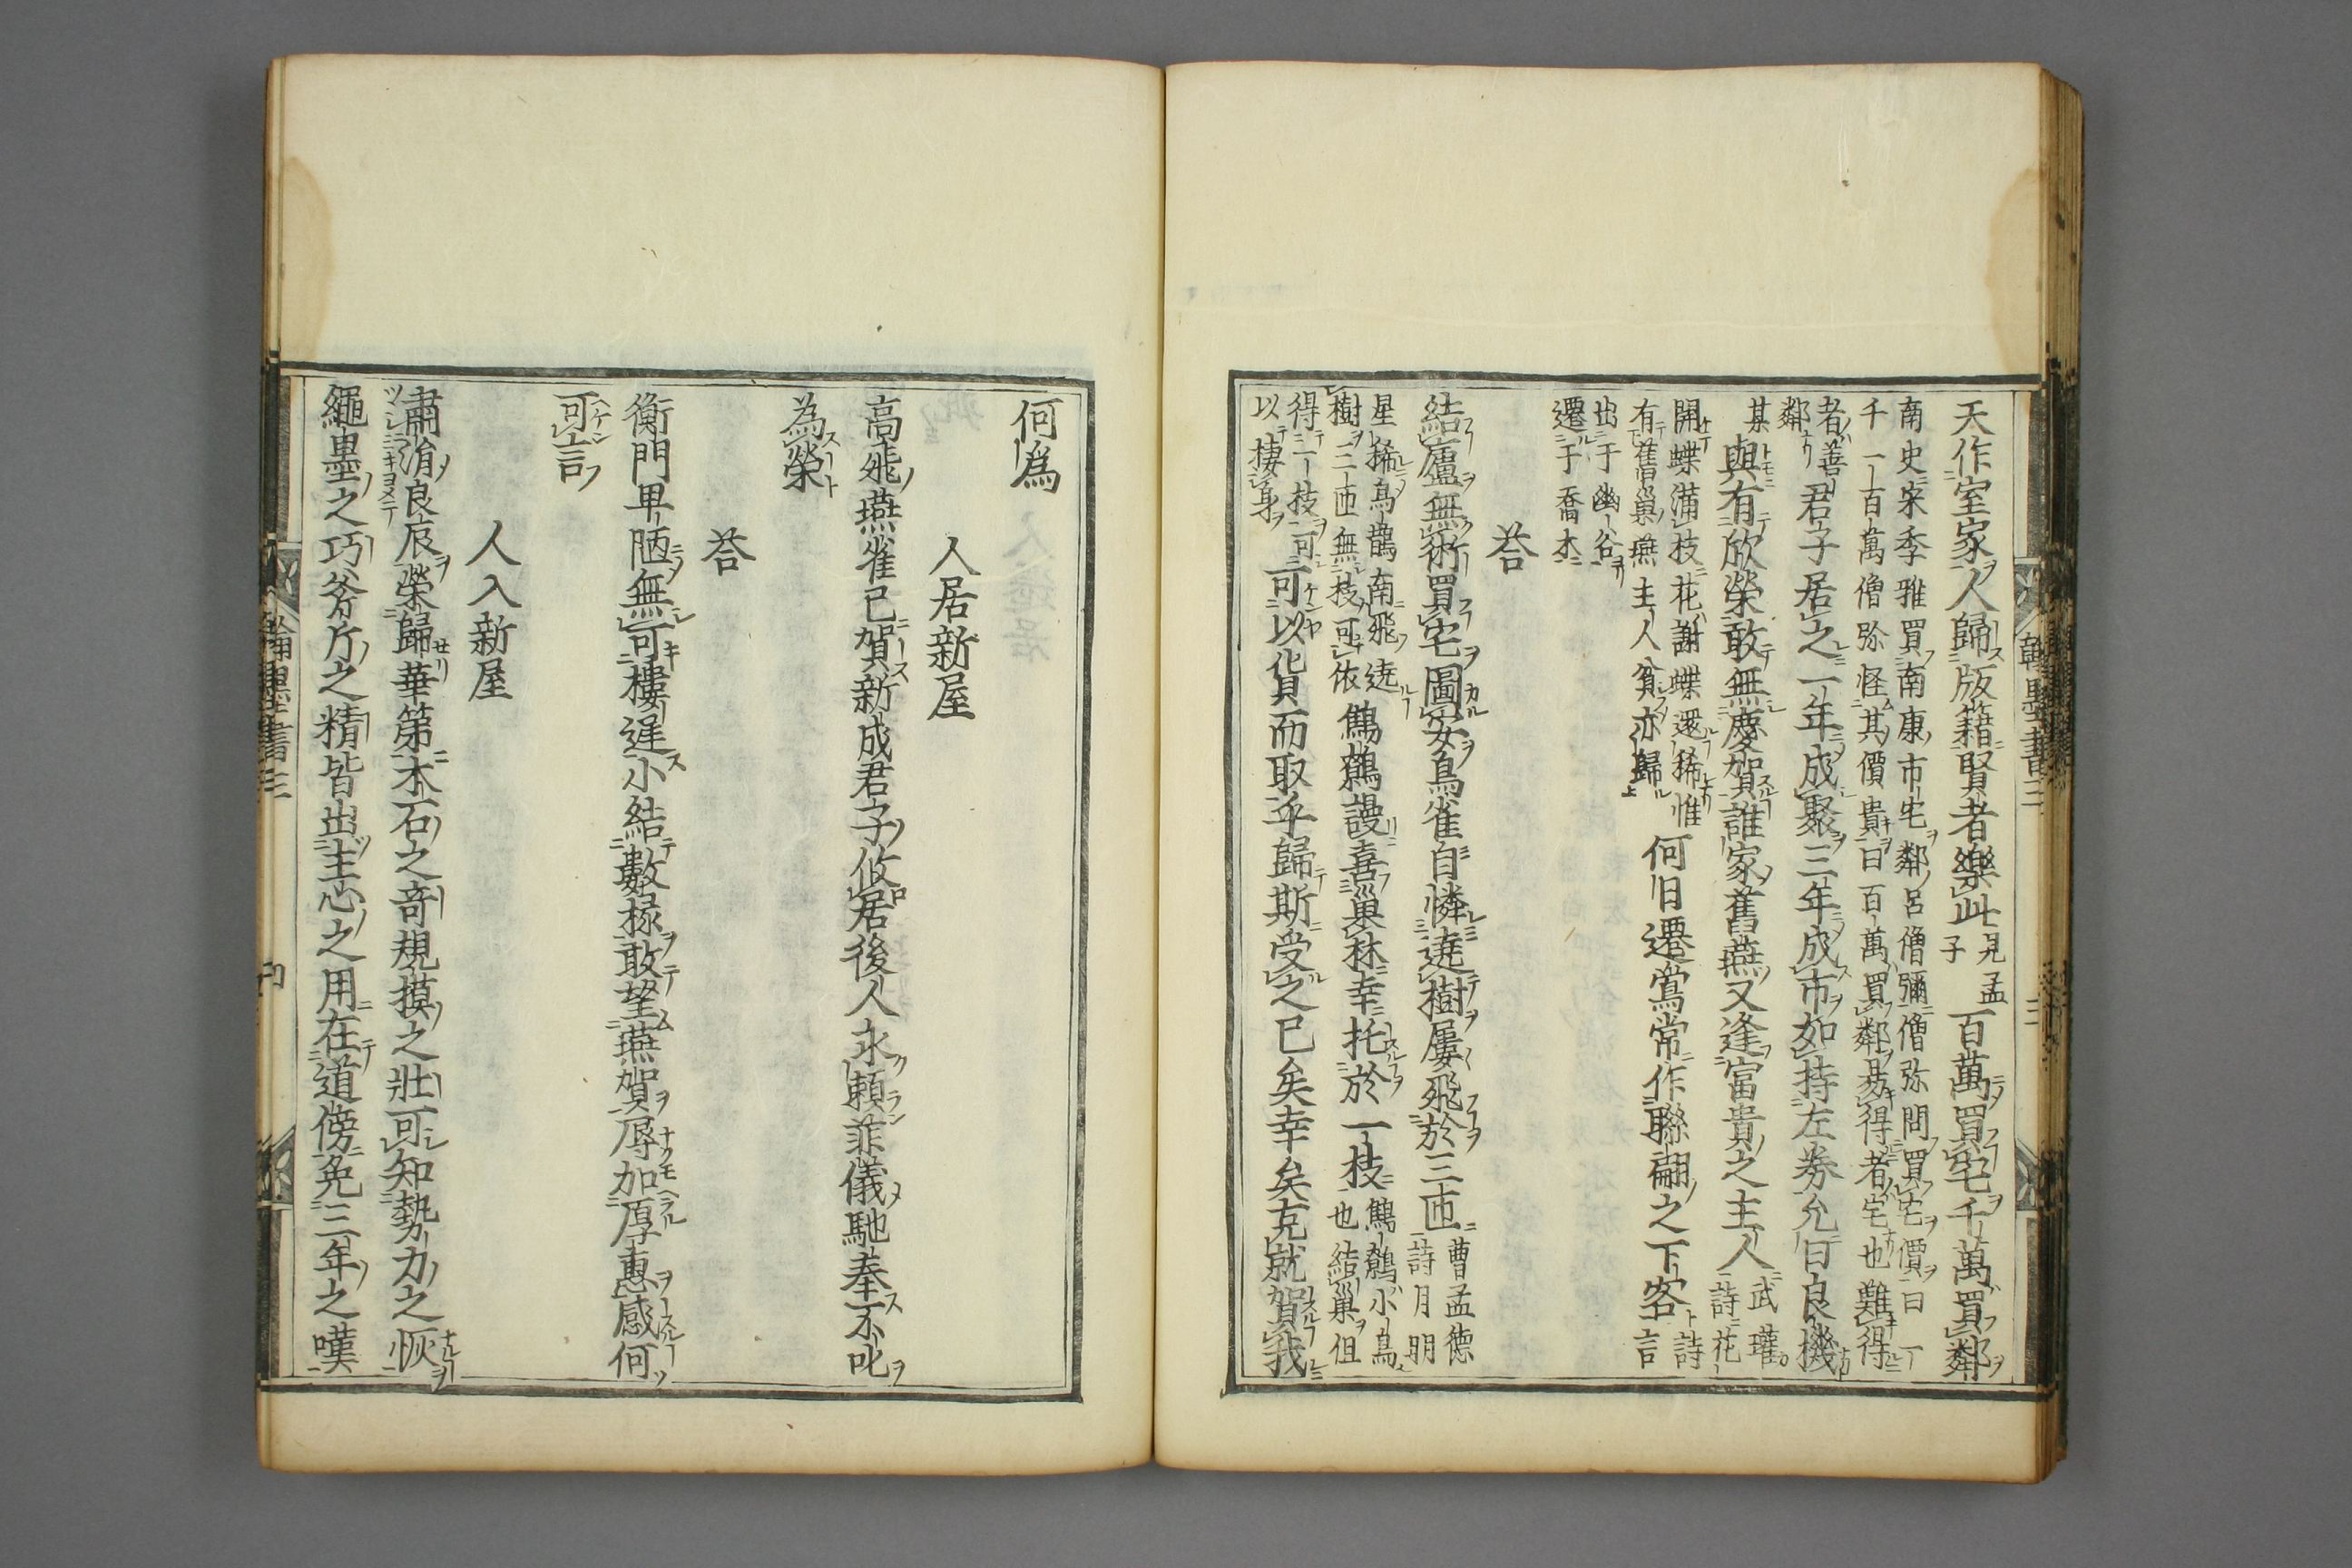 天作室家人歸版籍賢者樂此見孟子百萬買宅千萬買鄰
南史宋季雅買南康市宅鄰呂僧彌僧弥問買宅價曰一
千一百萬僧弥怪其價貴曰百萬買鄰易得者宅也難得
者善鄰君子居之一年成聚三年成市如持左券允曰良機
某與有欣榮敢無慶賀誰家舊燕又逢富貴之主人武瓘詩花
開蝶滿枝花謝蝶還稀惟
有舊巢燕主人貧亦歸何日遷鶯常作聯翩之下客詩言
出于幽谷
遷于喬木
荅
結廬無術買宅圖安鳥雀自憐遶樹屢飛於三匝曹孟德詩月明
星稀烏鵲南飛遶
樹三匝無枝可依鷦鷯謾喜巢林幸托於一枝鷦鷯小鳥也結巢但
得一枝可
以棲身可以化貝而取乎歸斯受之已矣幸矣克就賀我
翰墨書三
何為
人居新屋
高飛燕雀已賀新成君子攸居後人永頼菲儀馳奉不叱
為榮
荅
衡門卑陋無可棲遲小結數椽敢望燕賀辱加厚惠感何
可言
人入新屋
肅涓良辰榮歸華第木石之竒規摸之壯可知勢力之恢
繩墨之巧斧斤之精皆出主心之用在道傍免三年之嘆
翰墨書三